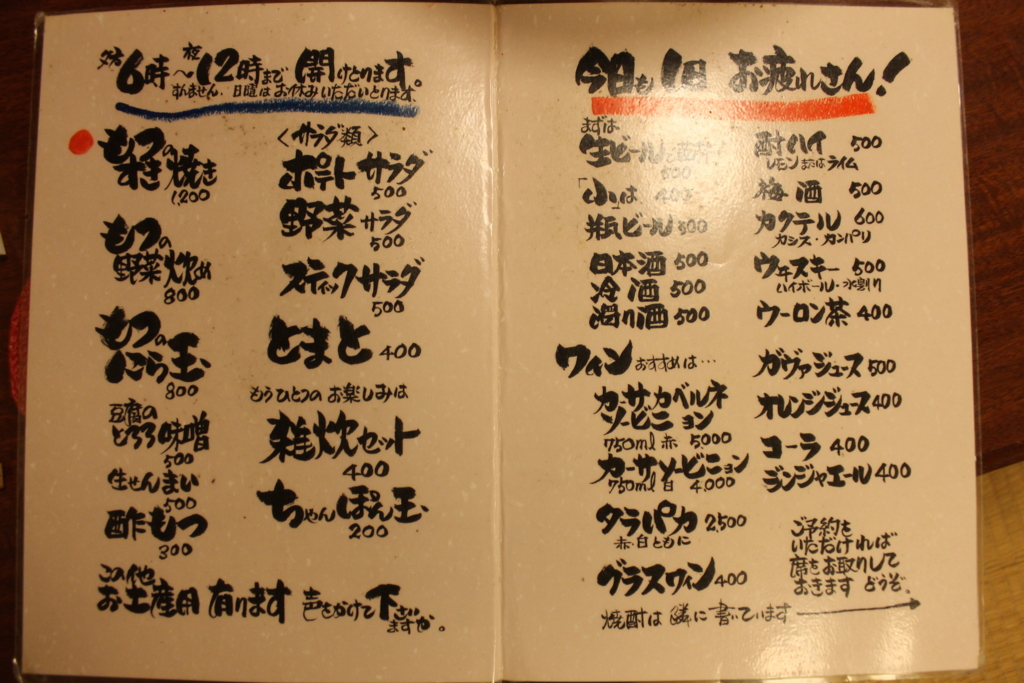 夕方6時〜夜12時まで 開けとります。
すんません。日曜はお休みいただいとります。
もつの
すき焼き
1,200
もつの
野菜炊め
800
もつの
にら玉
800
豆腐の
とろろ味噌
500
生せんまい
500
酢もつ
300
〈サラダ類〉
ポテトサラダ
500
野菜サラダ
500
スティックサラダ
500
とまと 400
もうひとつのお楽しみは
雑炊セット
400
ちゃんぽん玉
200
この他
お土産用 有ります 声をかけて下さい
ますか。
今日も1日 お疲れさん!
まずは
生ビール
500
「小」は 400
瓶ビール 500
日本酒 500
冷酒 500
濁り酒 500
酎ハイ 500
レモンまたはライム
梅酒 500
カクテル 600
カシス・カンパリ
ウヰスキー 500
ハイボール・水割り
ウーロン茶 400
ワイン おすすめは…
カーサカベルネ
ソービニヨン
750ml 赤 5,000
カーサソービニョン
750ml 白 4,000
タラパカ 2,500
赤・白ともに
グラスワイン 400
ガヴァジュース 500
オレンジジュース 400
コーラ 400
ジンジャエール 400
ご予約を
いただければ
席をお取りして
おきます どうぞ。
焼酎は 隣に書いています